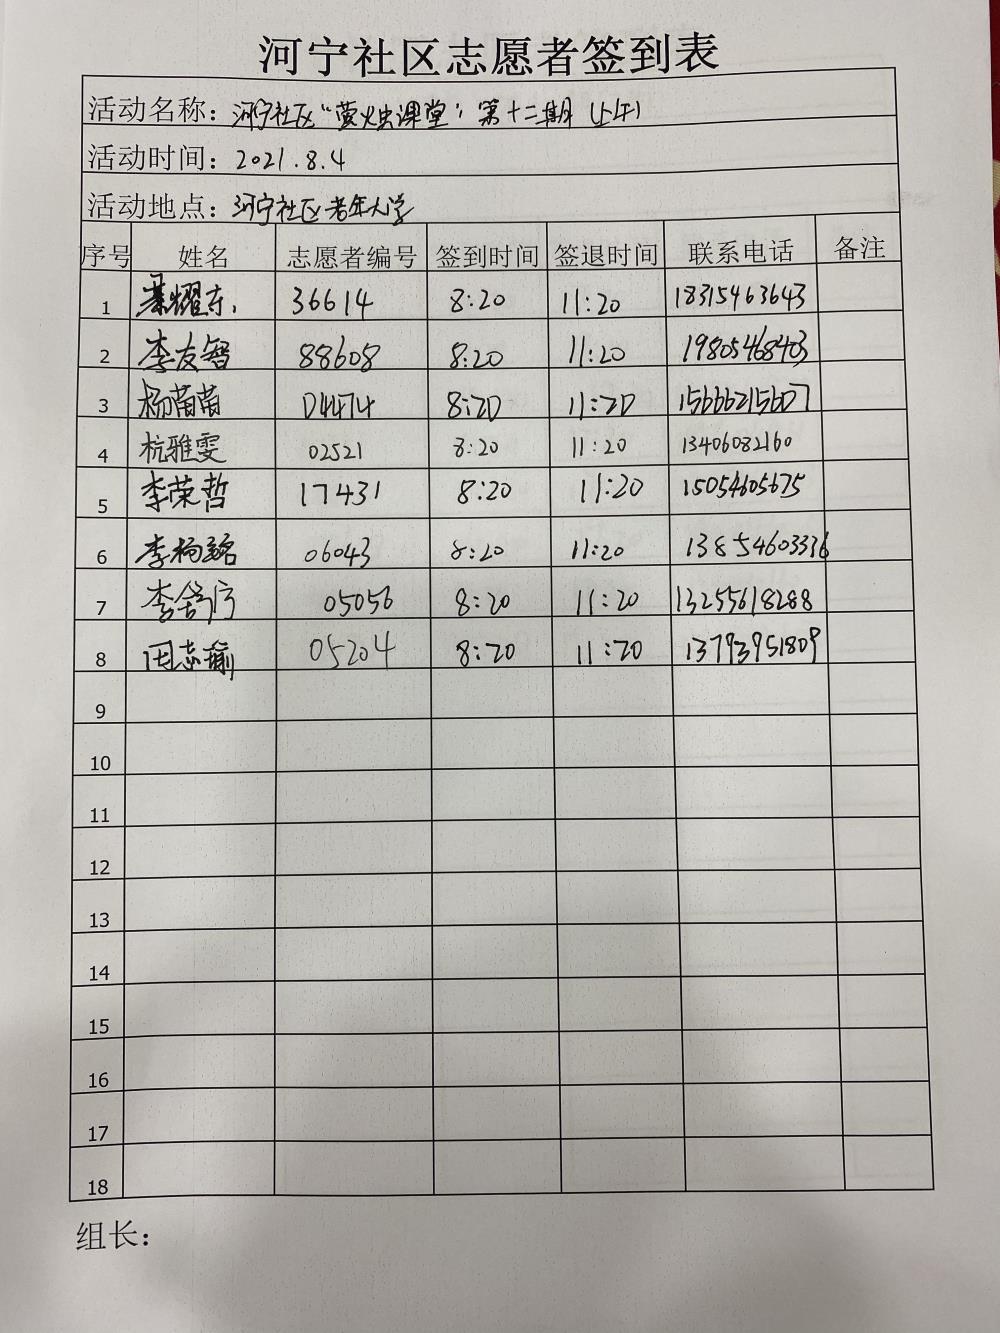 河宁社区志愿者签到表
活动名称：河宁社区“萤火虫课堂”第十二期（上午）
活动时间：2021.8.4
活动地点：河宁社区老年大学
序号 姓名 志愿者编号 签到时间 签退时间 联系电话 备注
1 耀东 36614 8:20 11:20 18315463643
2 李友智 88608 8:20 11:20 19805468403
3 杨苗苗 04474 8:20 11:20 15666215607
4 杭雅雯 02521 8:20 11:20 13406082160
5 李荣哲 17431 8:20 11:20 15054605675
6 李杨 06043 8:20 11:20 13854603336
7 李 05056 8:20 11:20 13255618288
8 田志瑜 05204 8:20 11:20 13793951809
9
10
11
12
13
14
15
16
17
18
组长：